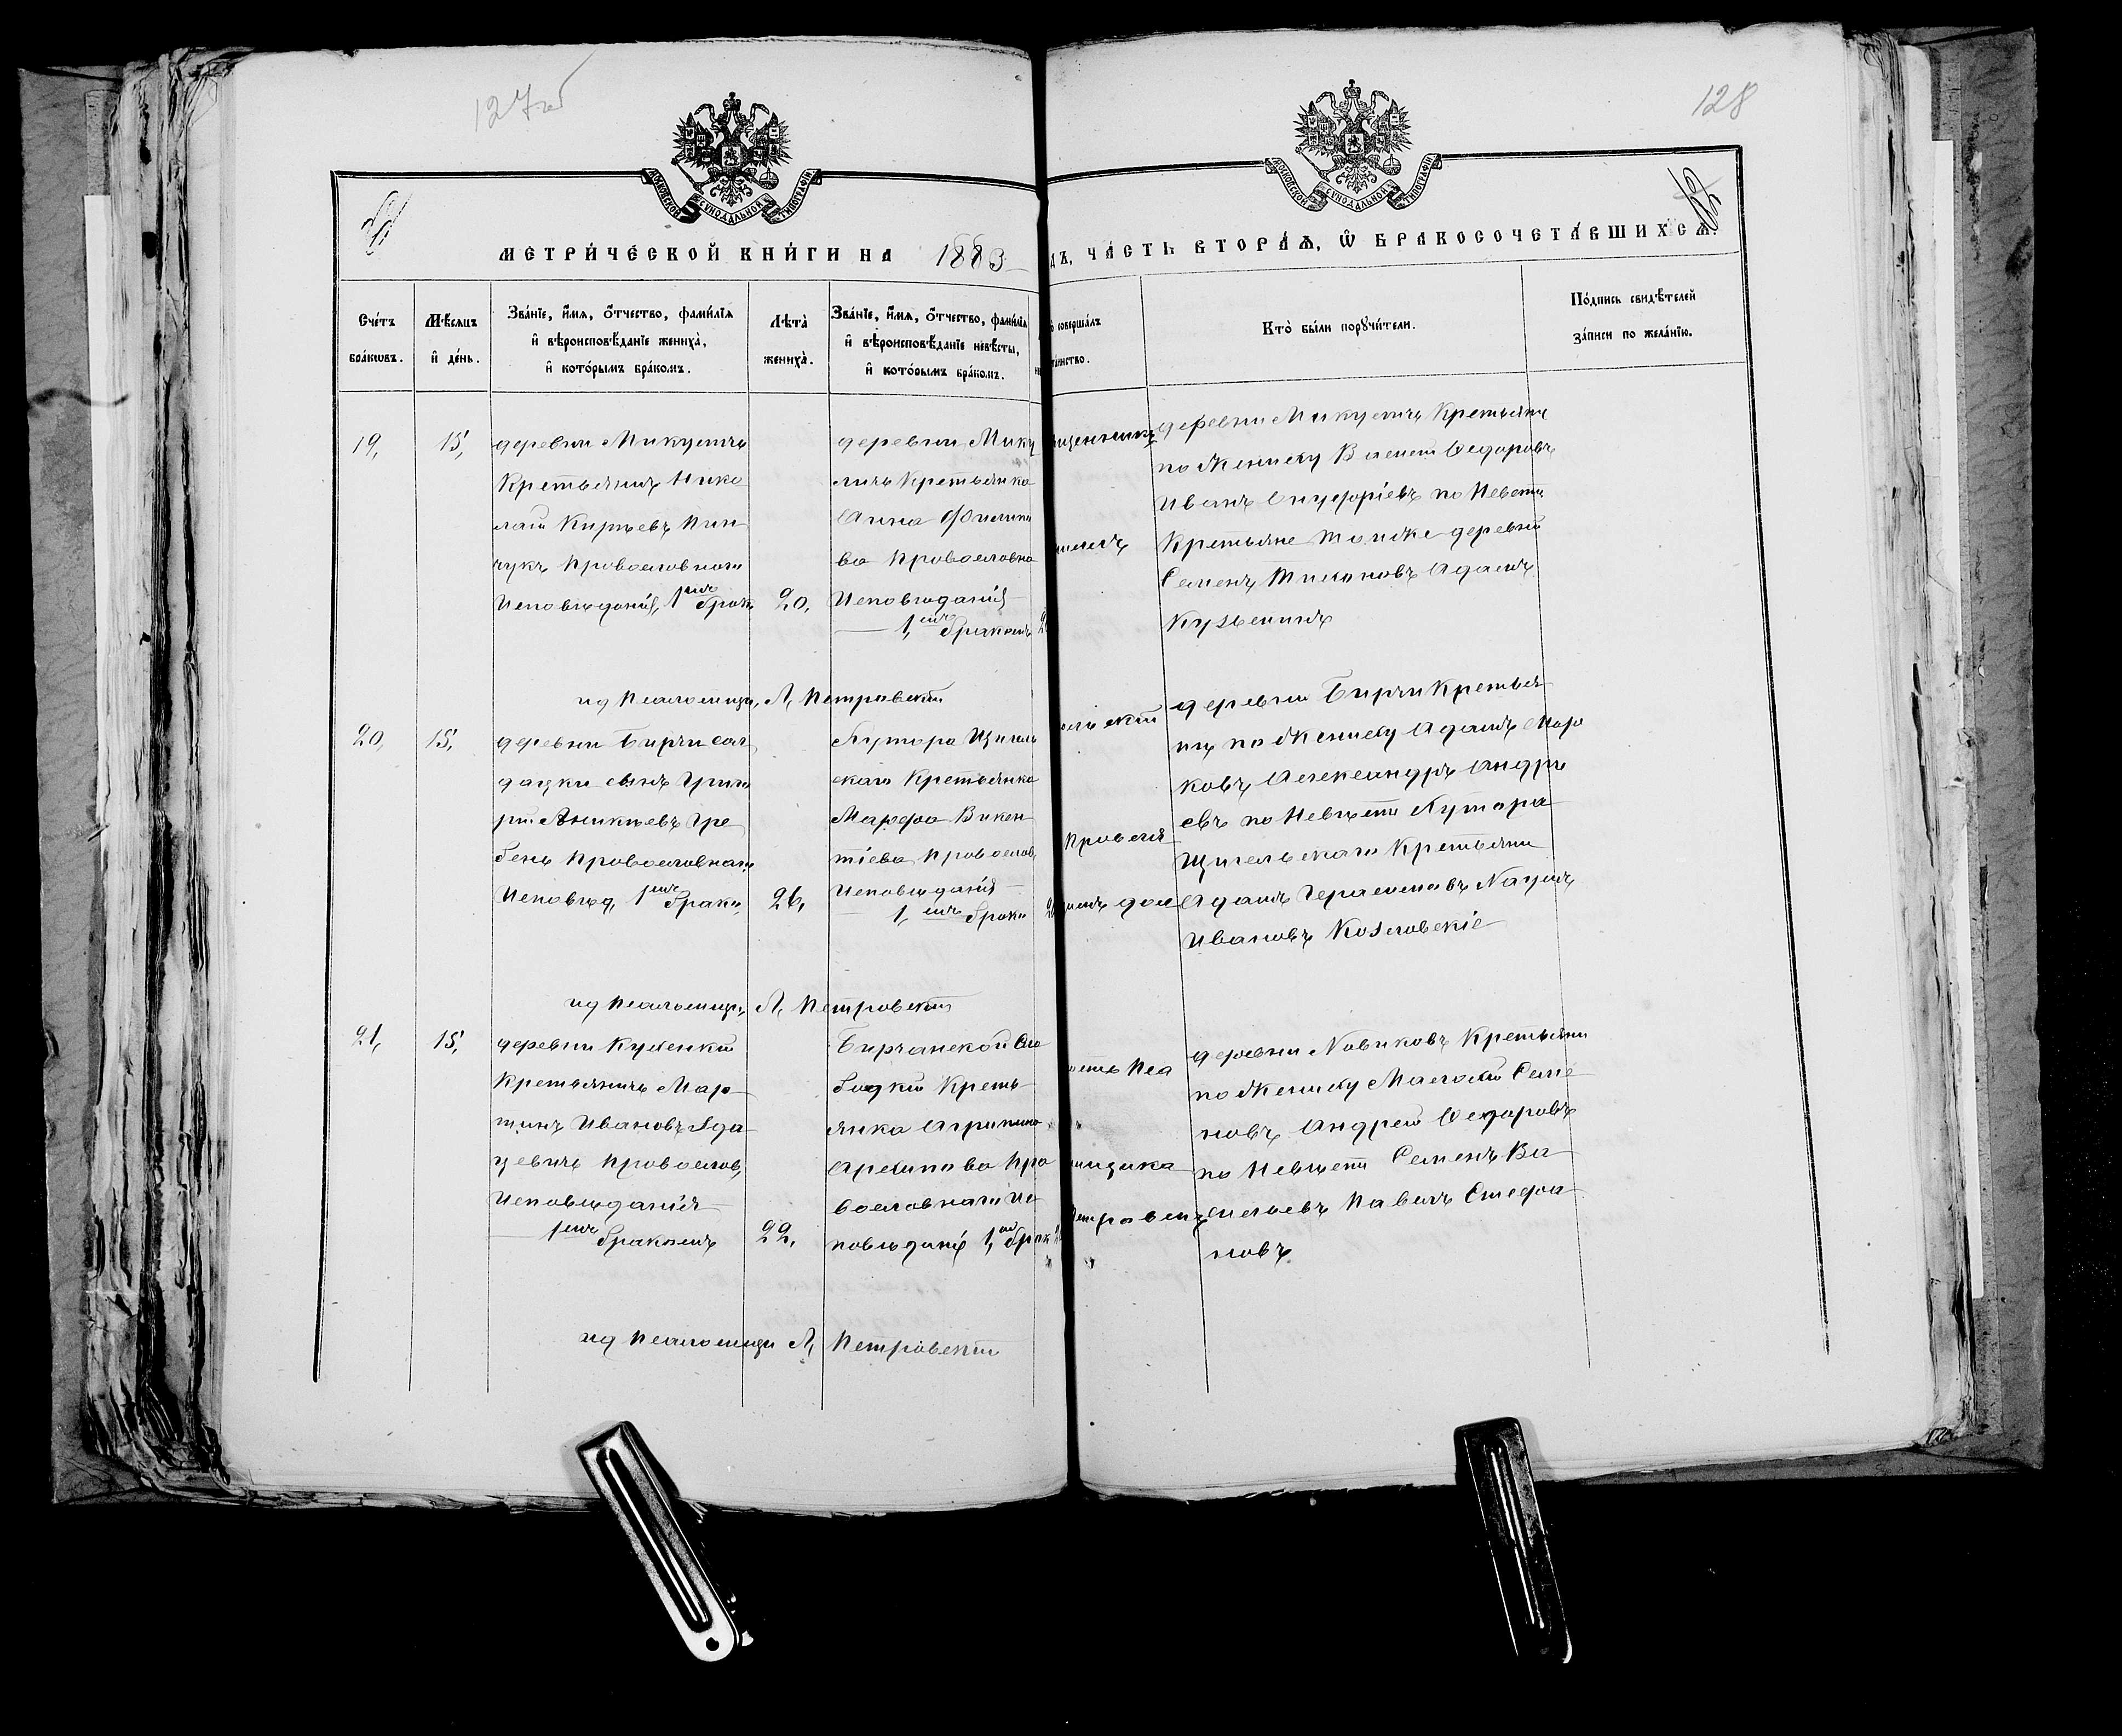 127об
128
МОСКОВСКОЙ СУНОДАЛЬНОЙ ТИПОГРАФІИ
МОСКОВСКОЙ СУНОДАЛЬНОЙ ТИПОГРАФІИ
МЕТРИ́ЧЕСКОЙ КНИ́ГИ НА 1883
ДЪ, ЧА́СТЬ ВТОРА́Ѧ, Ѽ БРАКОСОЧЕТА́ВШИХСѦ.
Сче́тъ бра́кѡвъ.
Мѣ́сѧцъ и҆ де́нь.
Зва́нїе, и҆́мѧ, ѻ҆́тчество, фами́лїѧ и҆ вѣроисповѣ́данїе жениха̀, и҆ кото́рымъ бра́комъ.
Лѣта̀ жениха̀.
Зва́нїе, и҆́мѧ, ѻ҆́тчество, фами́лїѧ и҆ вѣроисповѣ́данїе невѣ́сты, и҆ кото́рымъ бра́комъ.
соверша́лъ
та́инство.
Кто̀ бы́ли порꙋчи́тели.
По́дпись свидѣ́телей за́писи по жела́нїю.
19,
15,
деревни Микуличъ
Кретьянинъ Нико
лай Кирѣевъ Пин
чукъ Православнаго
Исповѣданія, 1мъ брак
20,
деревни Мику
личъ Кретьянка
Анна Филипо
ва Православна
Исповѣданія
1, мъ бракомъ
деревни Микуличъ Кретьяне
по Жениху Федоровъ
Иванъ Онуфріевъ по Невест
Кретьяне тойже деревни
Семенъ Тихоновъ Адамъ
Кузьминъ
ид Псаломщ, Л, Петровскій
20,
15,
деревни Бирчи сол
дацки сынъ Григо
рій Аникіевъ Гре
бень Православнаго
Исповѣд, 1мъ брако
26,
Хутора Щигель
скаго Кретьянка
Марфа Викен
тіева Православ,
Исповѣданія
1, мъ брако
деревни Бирчи Кретья
не по Жениху Адамъ Марк
ковъ Александръ Андре
евъ по Невѣсте Хутора
Щигельскаго Кретьяни
Адамъ Герасимовъ Наумъ
Ивановъ Козловскіе
ид Псаломщ, Л, Петровскій
21,
15,
деревни
Кретьянинъ Мар
тинъ Ивановъ Яда
цевичъ Православ,
Исповѣданія
1мъ бракомъ
22,
Бирчанской Сло
бодки Кресть
янка Агрипина
Архипова Пра
вославнаго Ис
повѣданія 1, мъ брак
деревни Новиковъ Кретьяни
по Жениху Семе
новъ Андрей Федоровъ
по Невѣсте Семенъ Ва
сильевъ Павелъ Стефа
новъ
ид Псаломщи Л, Петровскій